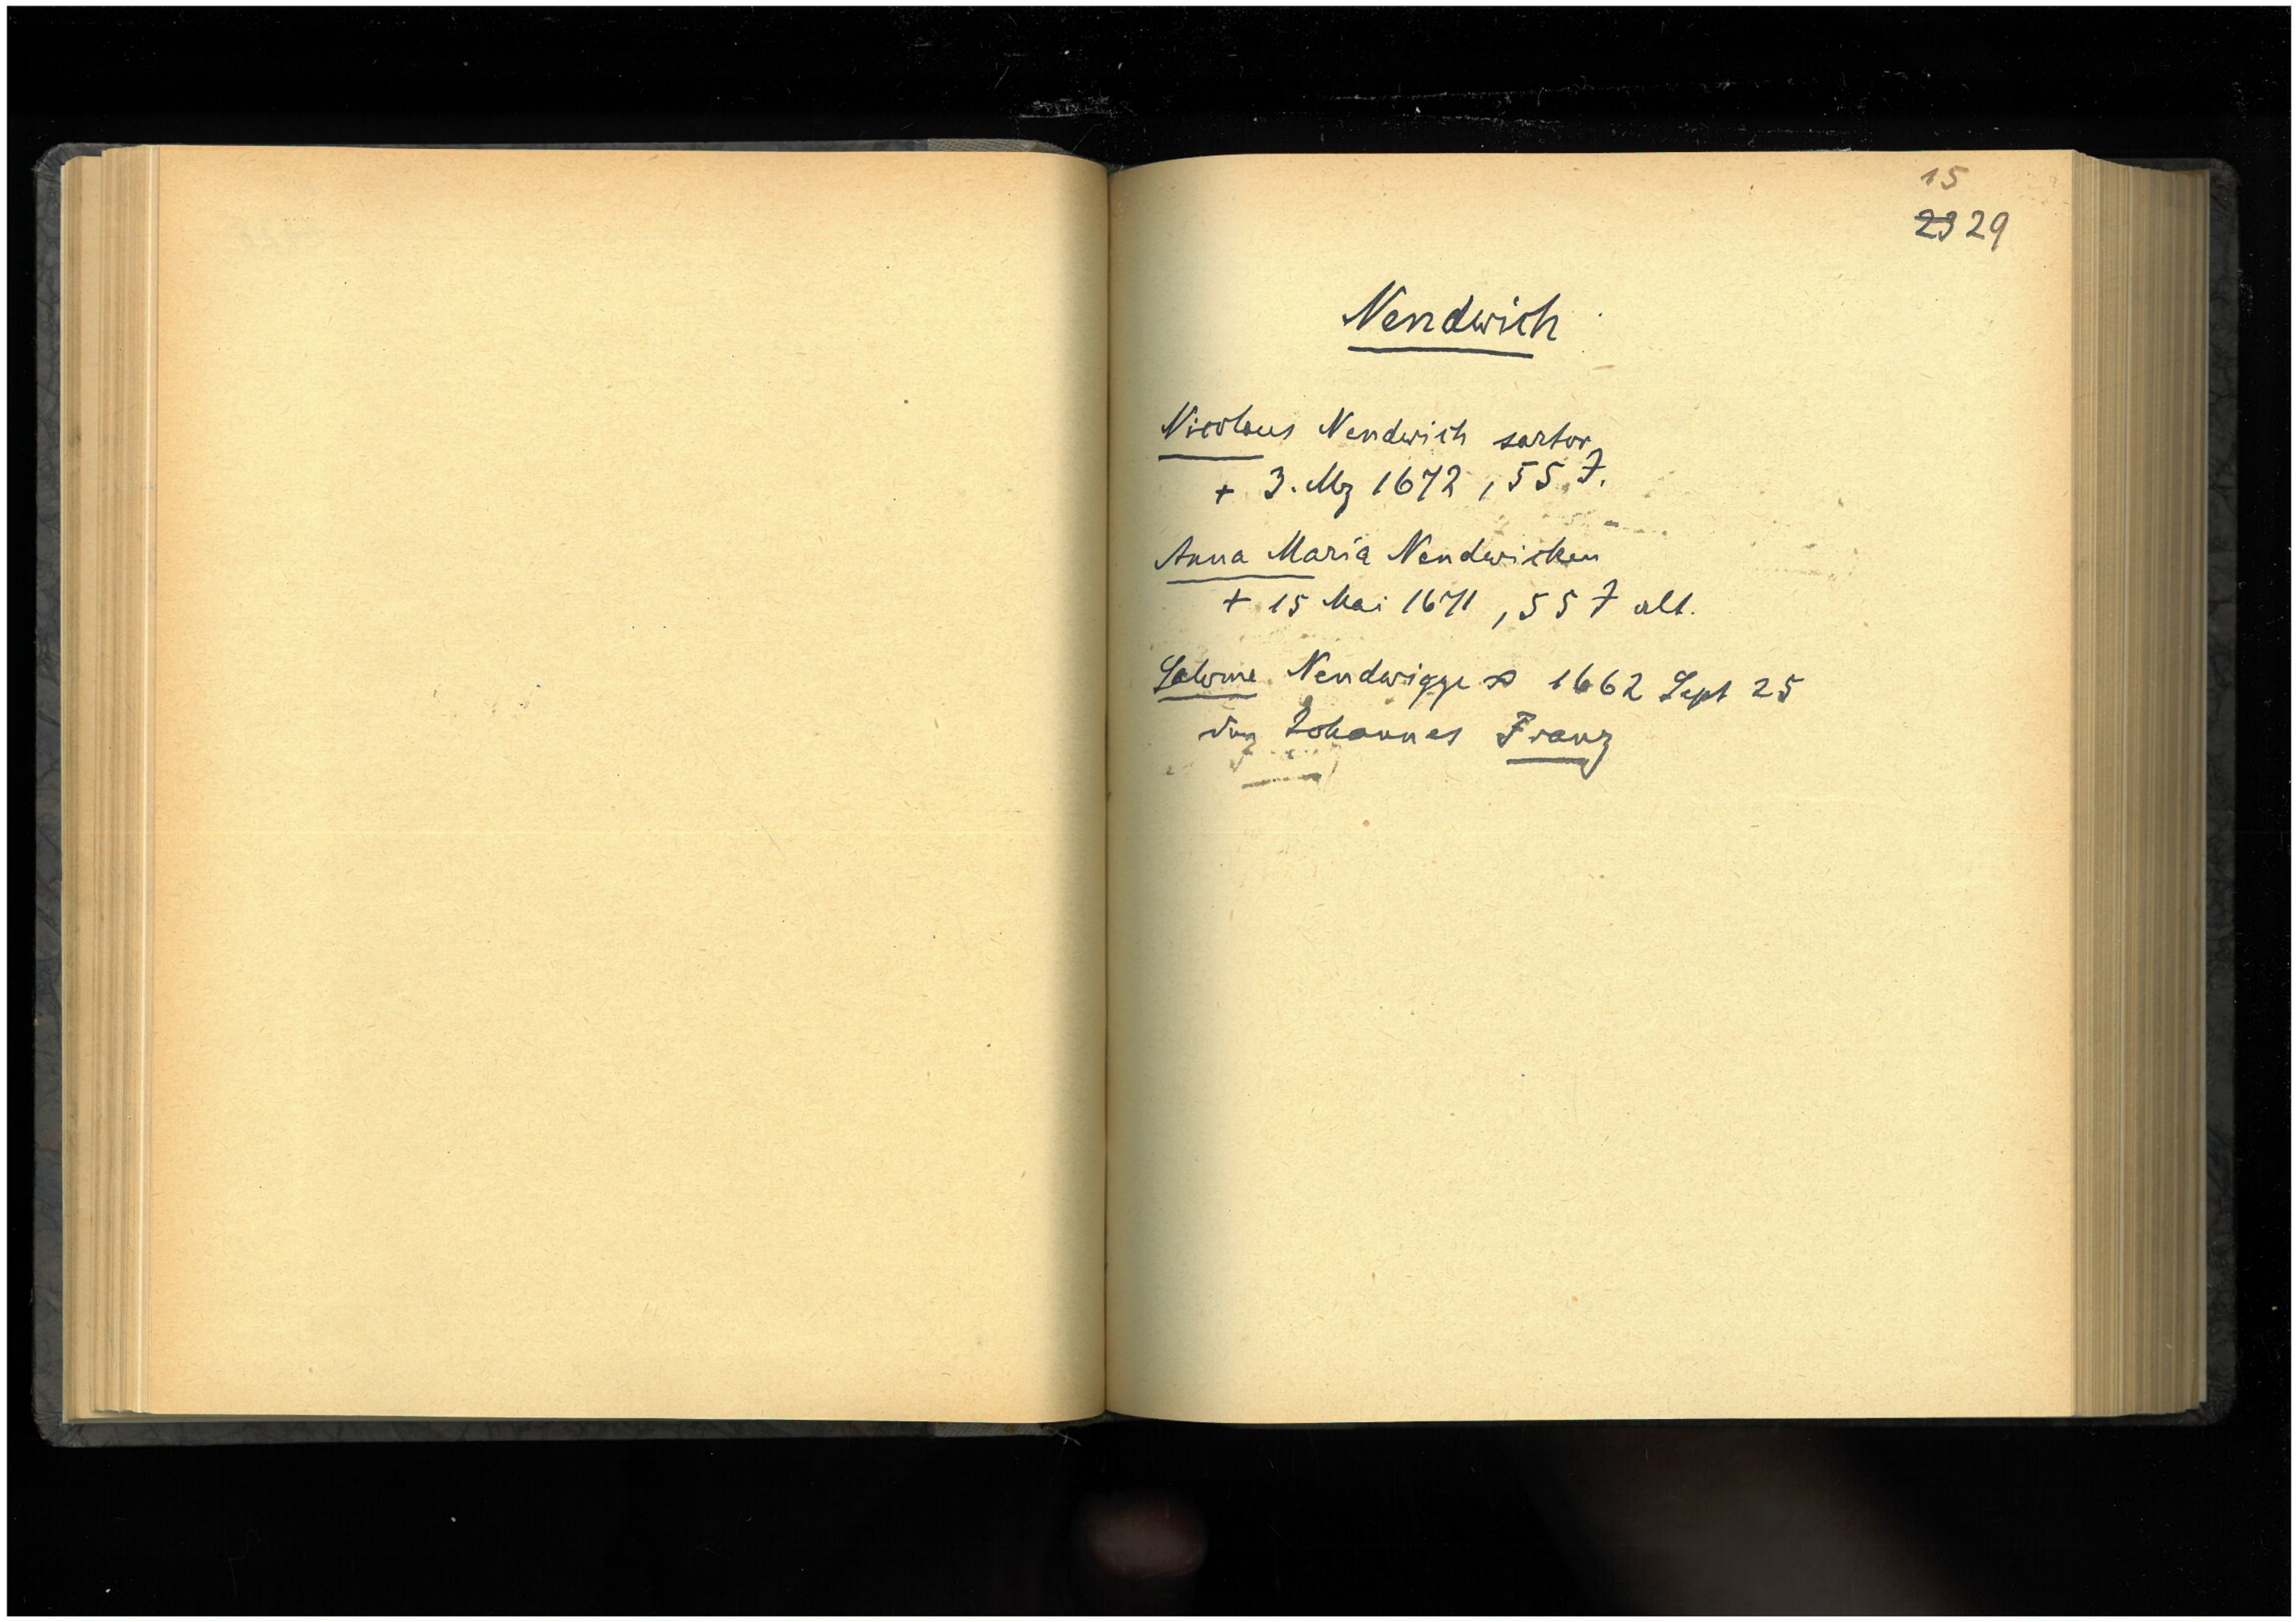 15
23 29
Nendwich
Nicolaus Nendwich sartor
+ 3. Mz 1672, 55 J.
Anna Maria Nendwicken
+ 15 Mai 1671, 55 J alt.
Salome Nendwigge ∞ 1662 Sept 25
den Johannes Franz